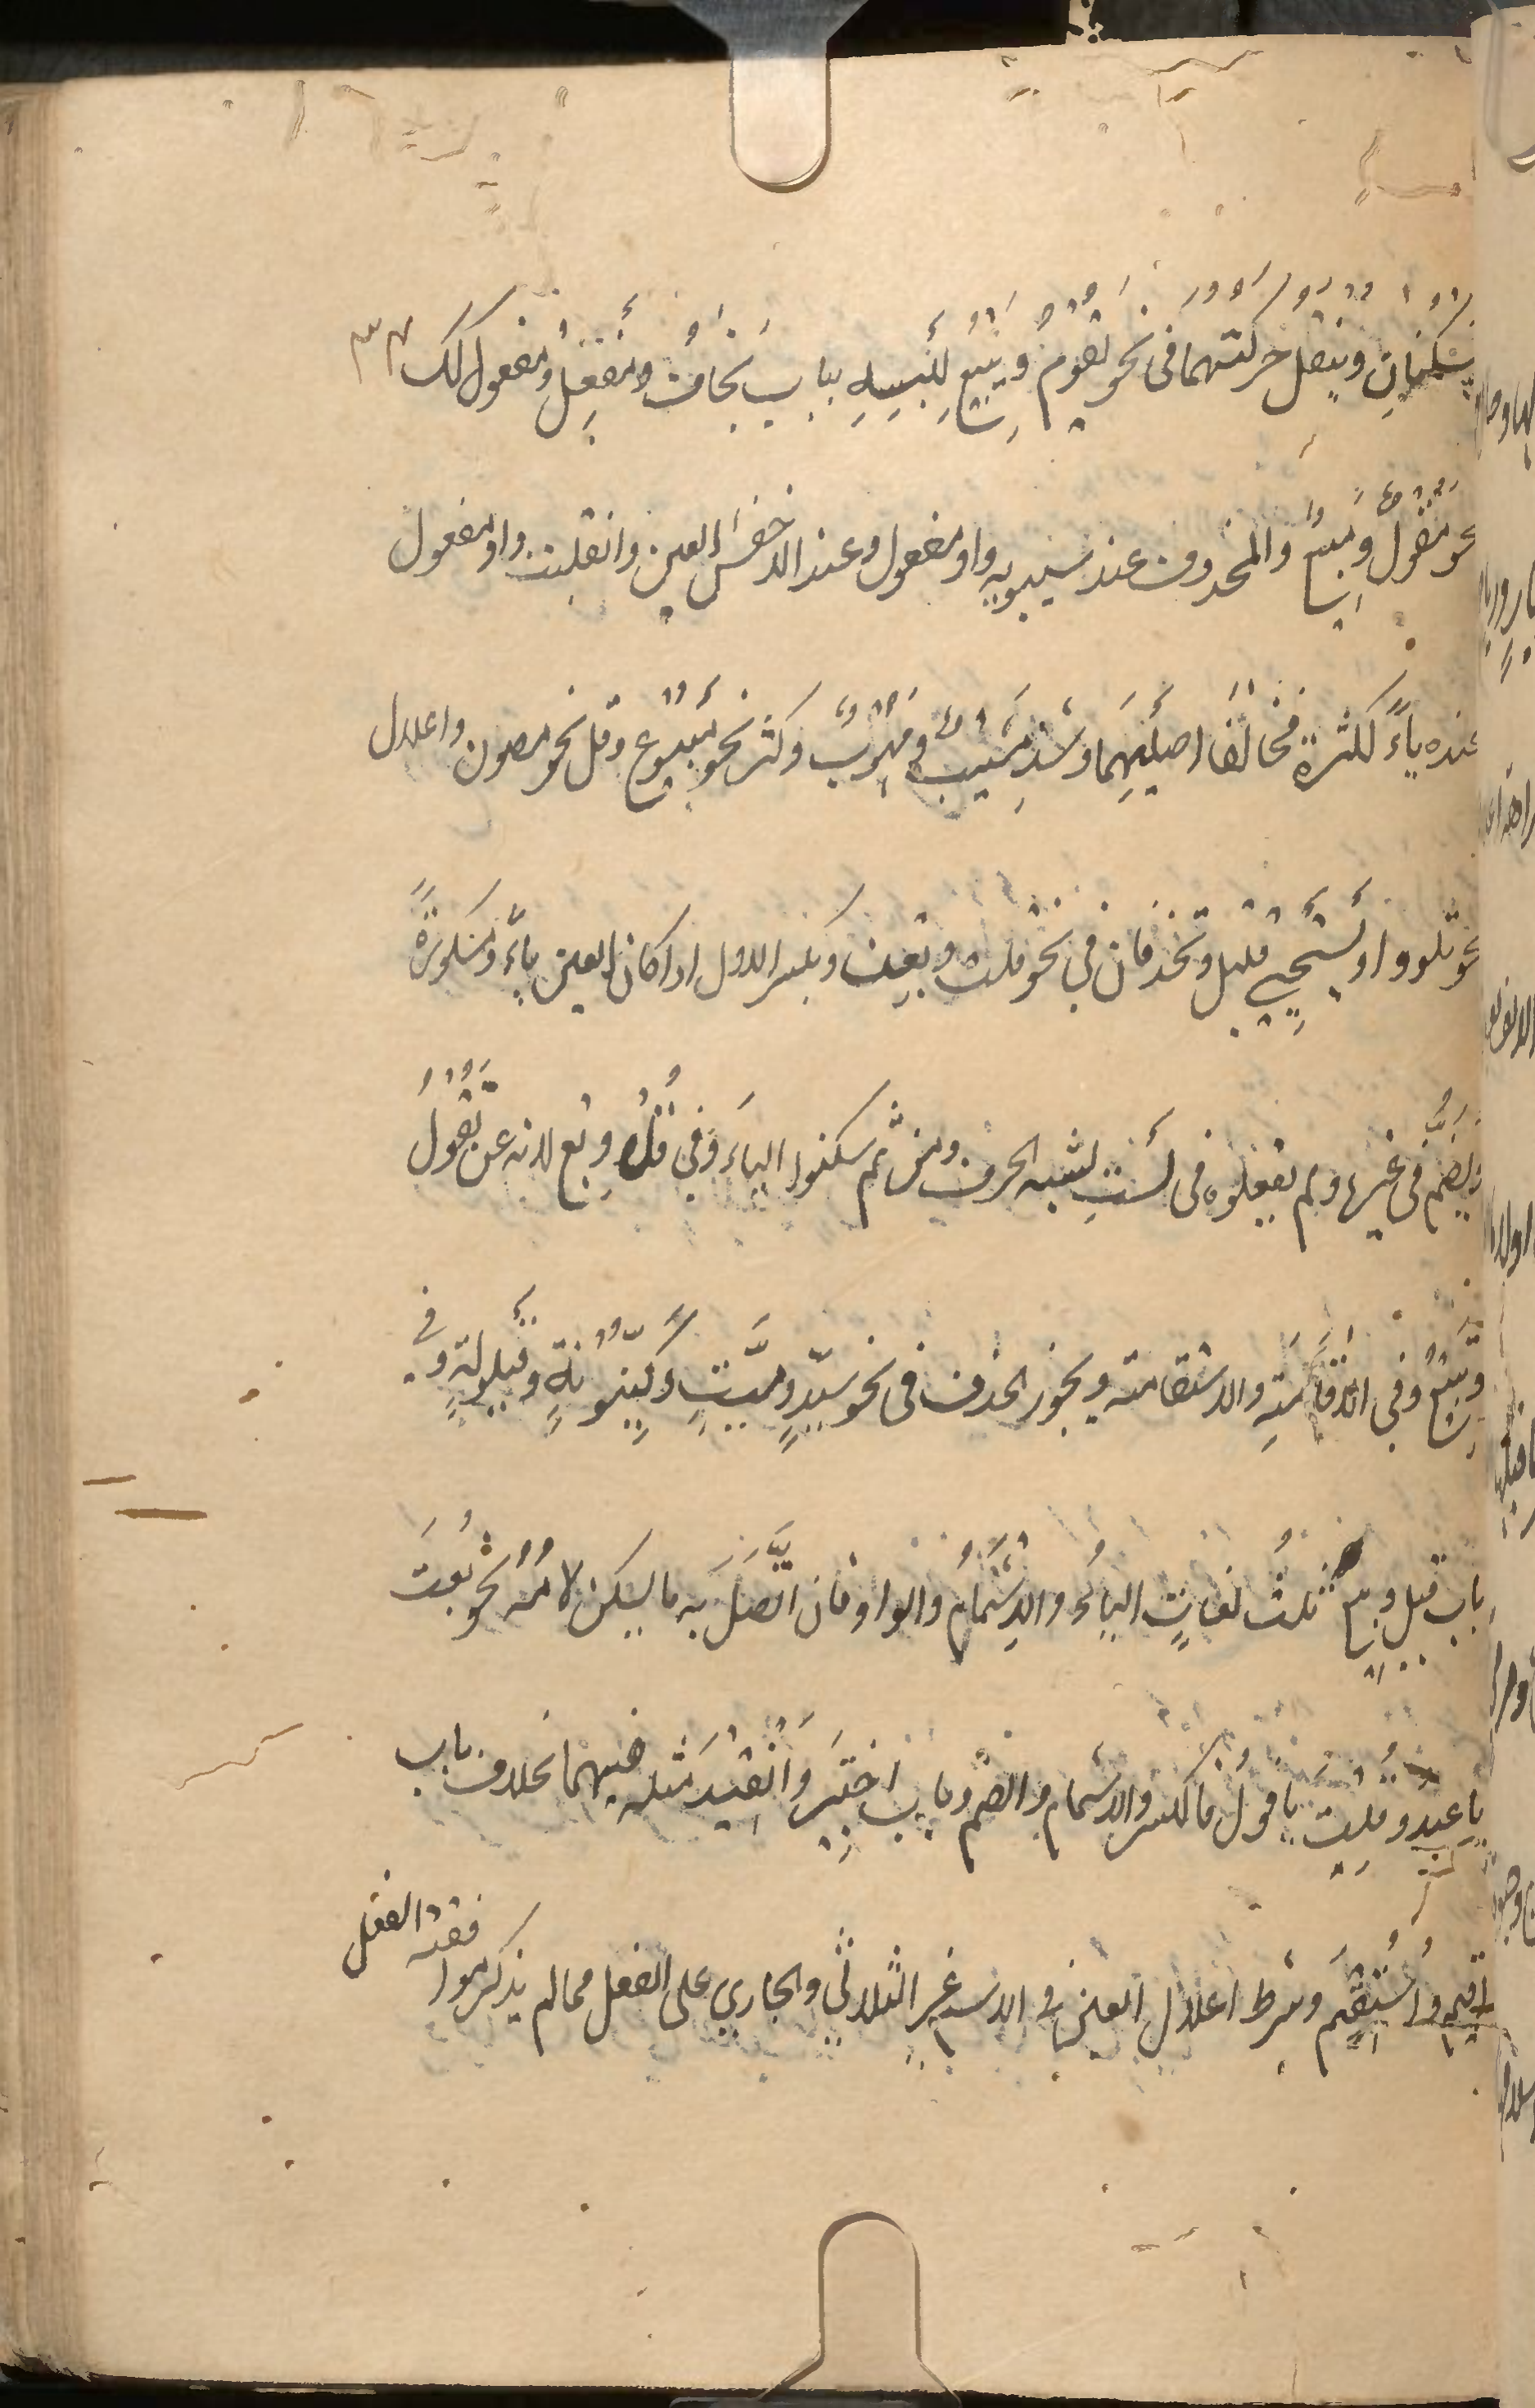 يسكنان وينقل حركتهما فى نحو تقُومُ ويَبِيعُ لِلُبسِهِ بباب يَخافُ ومَفعِلُ ومَفعول كك
نحو مَقُولٌ ومَبيعٌ والمحذوف عند سيبويه واو مفعول وعند الاخفش العين وانقلبت واو مفعول
عنده ياءً للكثرة فخالفا اصلَيهِمَا وشذ مَشِيبٌ ومَهُوبٌ وكثر نحو مَبيُوع وقل نحو مصوون واعلال
نحو تلووا ويَستَحيِى قليل وتحذفان في نحو قلت وبعت وبكسر الاول اذا كان العين ياءً ومكسورةً
ويُضمّ فى غيرها ولم يفعلوه فى لَستُ لشبه الحرف ومن ثم سكنوا الياءَ وفي قُلْ وبِع لانه عن تَقُولُ
وتَبِيعُ وفي الاقَامَةِ والاستقامة ويجوز الحذف فى نحو سيّدٍ وميّتٍ وكَيّنُونةٍ وقيّلولةٍ وفي
باب قيل وبيع ثلث لغاتٍ الياءُ والاِشمَامُ والواو فان اتَّصَلَ به ما يسكن لامُهُ نحو بُعتَ
يا عبدُ وقُلتَ يا قولُ فالكسر والاشمام والضم وباب اختِيرَ وانقِيدَ مثله فيهما بخلاف باب
اقيم واُستُقِيمَ وشرط اعلال العين فى الاسم غير الثلاثي والجاري على الفعل ممالم يذكر موافقة الفعل